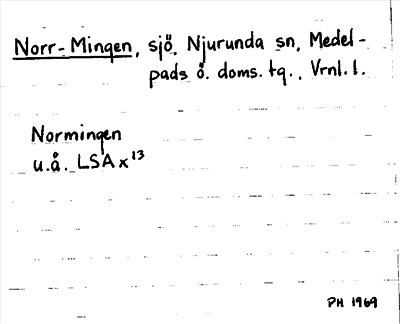 Norr-Mingen, sjö, Njurunda sn, Medel-
pads ö. doms. tg., Vrnl. l.
Normingen
u.å. LSA x13
PH 1969